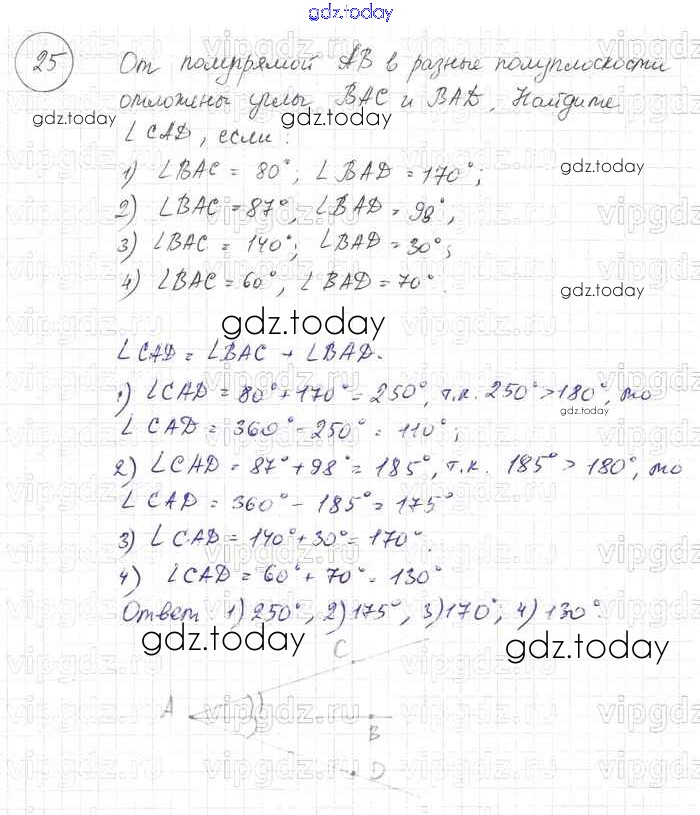 gdz.today
25 От полупрямой AB в разные полуплоскости
отложены углы BAC и BAD. Найдите
∠CAD, если:
1) ∠BAC = 80°; ∠BAD = 170°;
2) ∠BAC = 87°, ∠BAD = 98°,
3) ∠BAC = 140°; ∠BAD = 30°;
4) ∠BAC = 60°, ∠BAD = 70°.
∠CAD = ∠BAC + ∠BAD.
1) ∠CAD = 80° + 170° = 250°, т.к. 250° > 180°, то
∠CAD = 360° - 250° = 110°;
2) ∠CAD = 87° + 98° = 185°, т.к. 185° > 180°, то
∠CAD = 360° - 185° = 175°
3) ∠CAD = 140° + 30° = 170°.
4) ∠CAD = 60° + 70° = 130°
Ответ: 1) 250°, 2) 175°, 3) 170°; 4) 130°.
gdz.today
gdz.today
C
A
B
D
gdz.today
gdz.today
gdz.today
gdz.today
gdz.today
gdz.today
gdz.today
vipgdz.ru